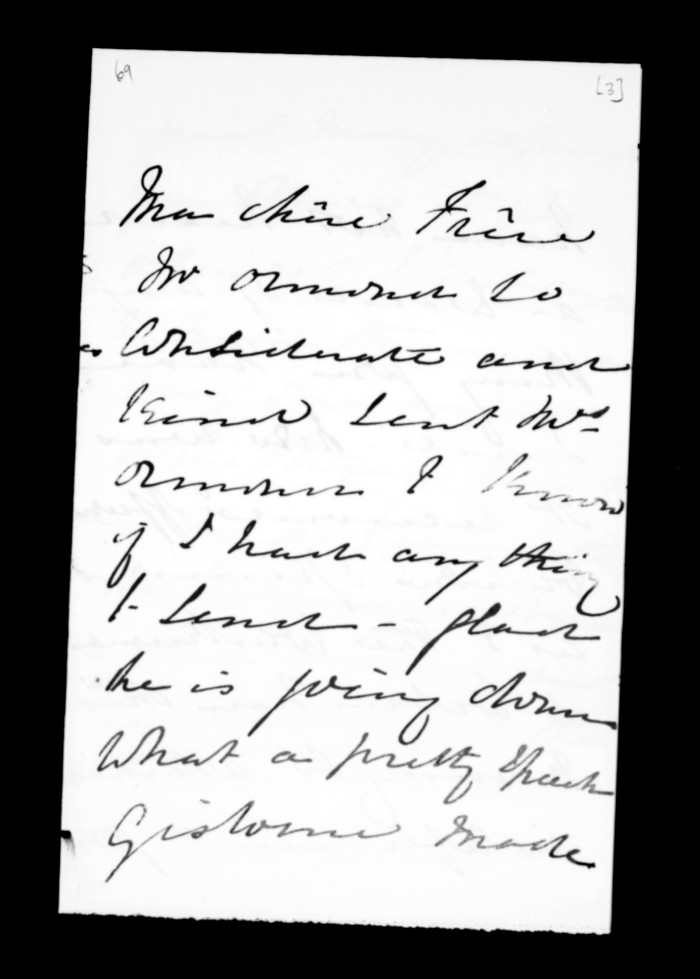 69 [3]
Mon chère Frère
Mr Ormond so
Considerate and
Kind sent Mrs
Ormond I know
if I had any thing
to send - glad
he is going down
What a pretty Speech
Gisborne made